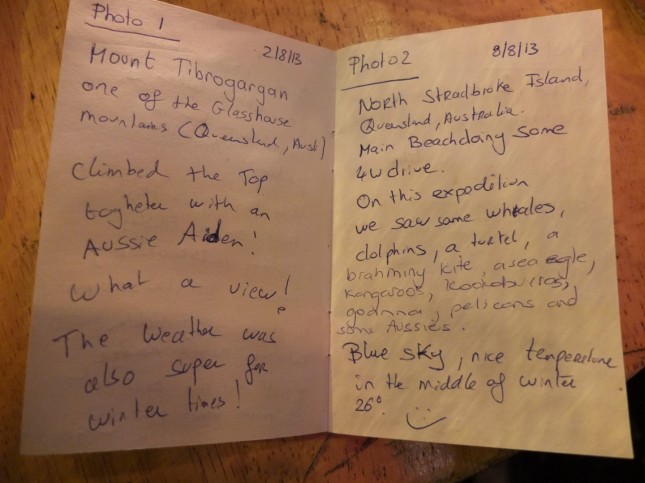 Photo 1
2/8/13
Mount Tibrogargan
one of the Glasshouse
mountains (Queensland, Aust)
Climbed the Top
togheter with an
Aussie Aiden!
What a view!
The Weather was
also super for
winter times!
Photo 2
8/8/13
North Stradbroke Island,
Queensland, Australia.
Main Beach doing some
4w drive.
On this expedition
we saw some whales,
dolphins, a turtel, a
brahminy kite, a sea eagle,
kangaroos, kookaburras,
goanna, pelicans and
some Aussies.
Blue sky, nice temperature
in the middle of winter
26°.